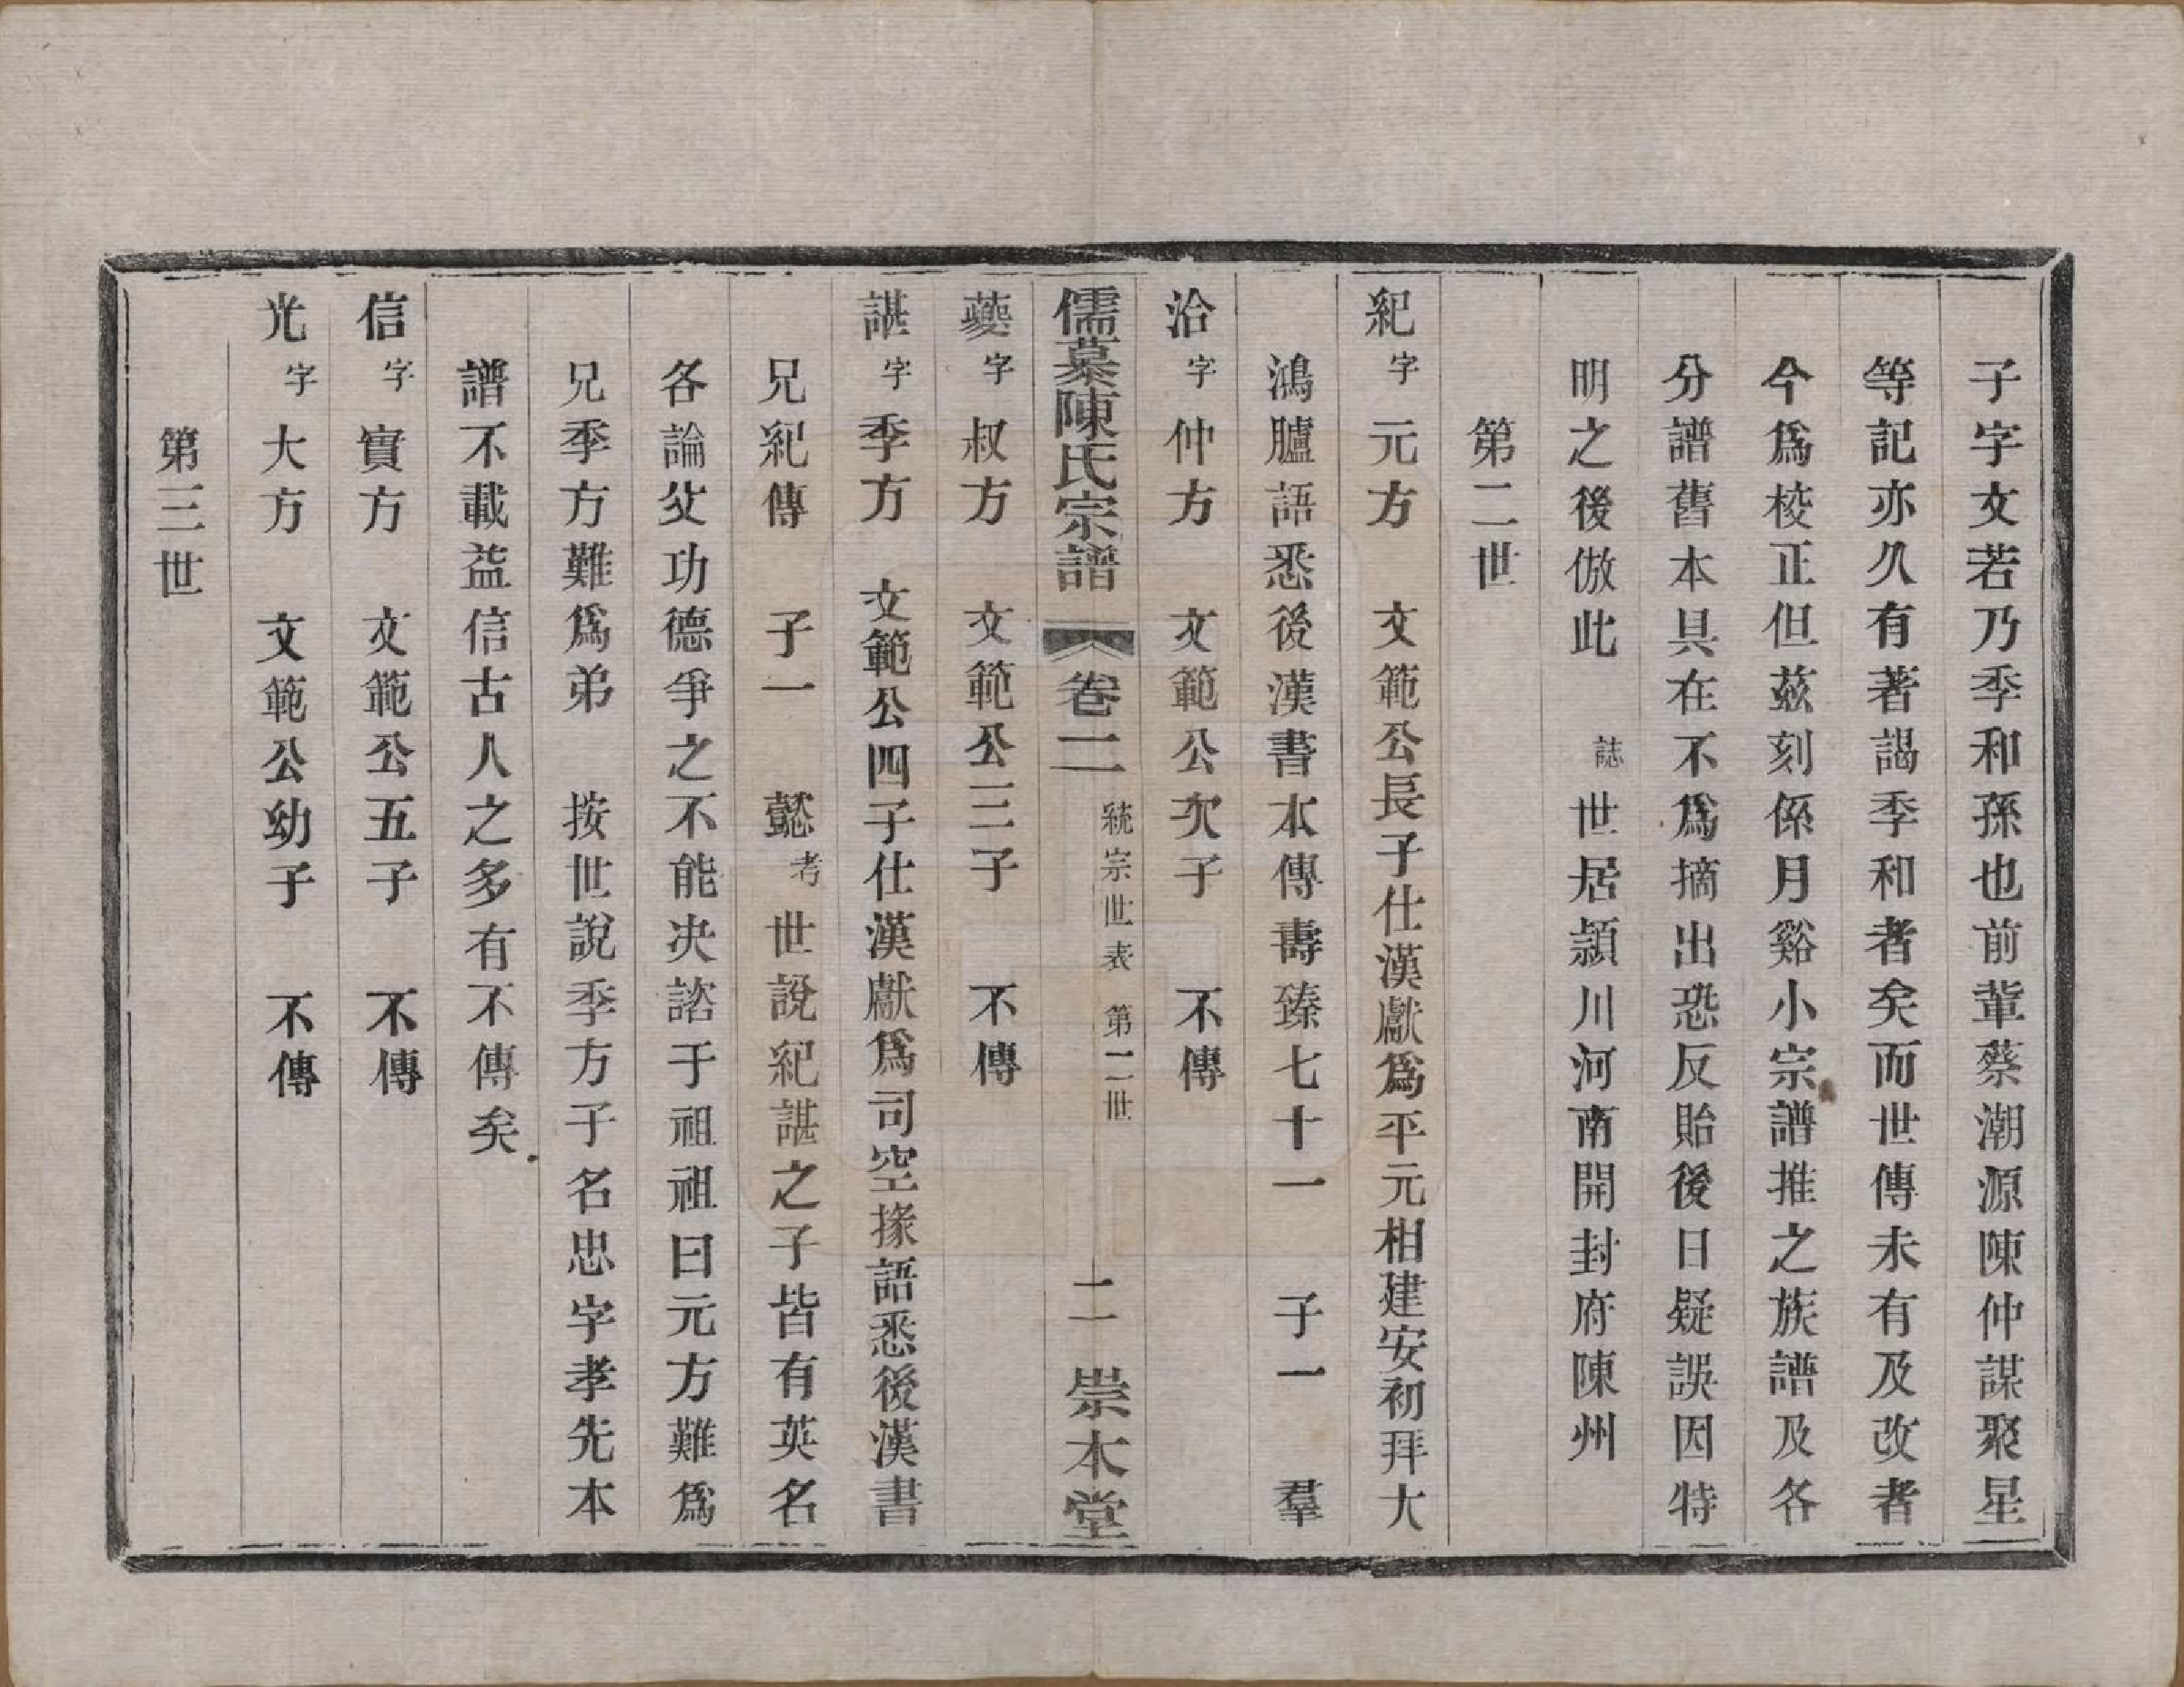 子字文若乃季和孫也前輩蔡潮源陳仲謀聚星
等記亦久有著謁季和者矣而世傳未有及改者
今爲校正但茲刻係月谿小宗譜推之族譜及各
分譜舊本具在不爲摘出恐反貽後日疑誤因特
明之後倣此　誌世居潁川河南開封府陳州
第二世
紀字元方　文範公長子仕漢獻爲平元相建安初拜大
鴻臚語悉後漢書本傳壽臻七十一　子一　羣
洽字仲方　文範公次子　不傳
儒慕陳氏宗譜　卷二　統宗世表　第二世　二　崇本堂
蘷字叔方　文範公三子　不傳
諶字季方　文範公四子仕漢獻爲司空掾語悉後漢書
兄紀傳　子一　懿考世說紀諶之子皆有英名
各論父功德爭之不能决諮于祖祖曰元方難爲
兄季方難爲弟　按世說季方子名忠字孝先本
譜不載益信古人之多有不傳矣
信字實方　文範公五子　不傳
光字大方　文範公幼子　不傳
第三世